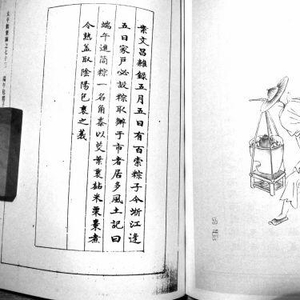 案文昌雜錄五月五日有百索粽子今浙江逢
五日家戶必設粽取辦于市者居多風土記曰
端午進筒粽一名角黍以菱葉裹黏米栗棗煮
令熟蓋取陰陽包裹之義